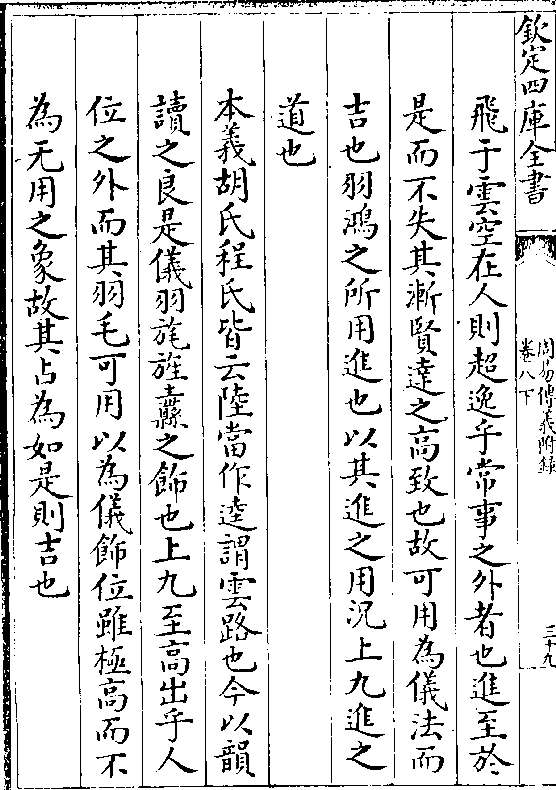 欽定四庫全書
周易傳義附錄
卷八下
三十九
飛于雲空在人則超逸乎常事之外者也進至於
是而不失其漸賢達之高致也故可用為儀法而
吉也羽鴻之所用進也以其進之用況上九進之
道也
本義胡氏程氏皆云陸當作逵謂雲路也今以韻
讀之良是儀羽旄旌纛之飾也上九至高出乎人
位之外而其羽毛可用以為儀飾位雖極高而不
為无用之象故其占為如是則吉也